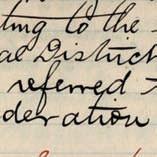 ting to the
al District
referred
deration